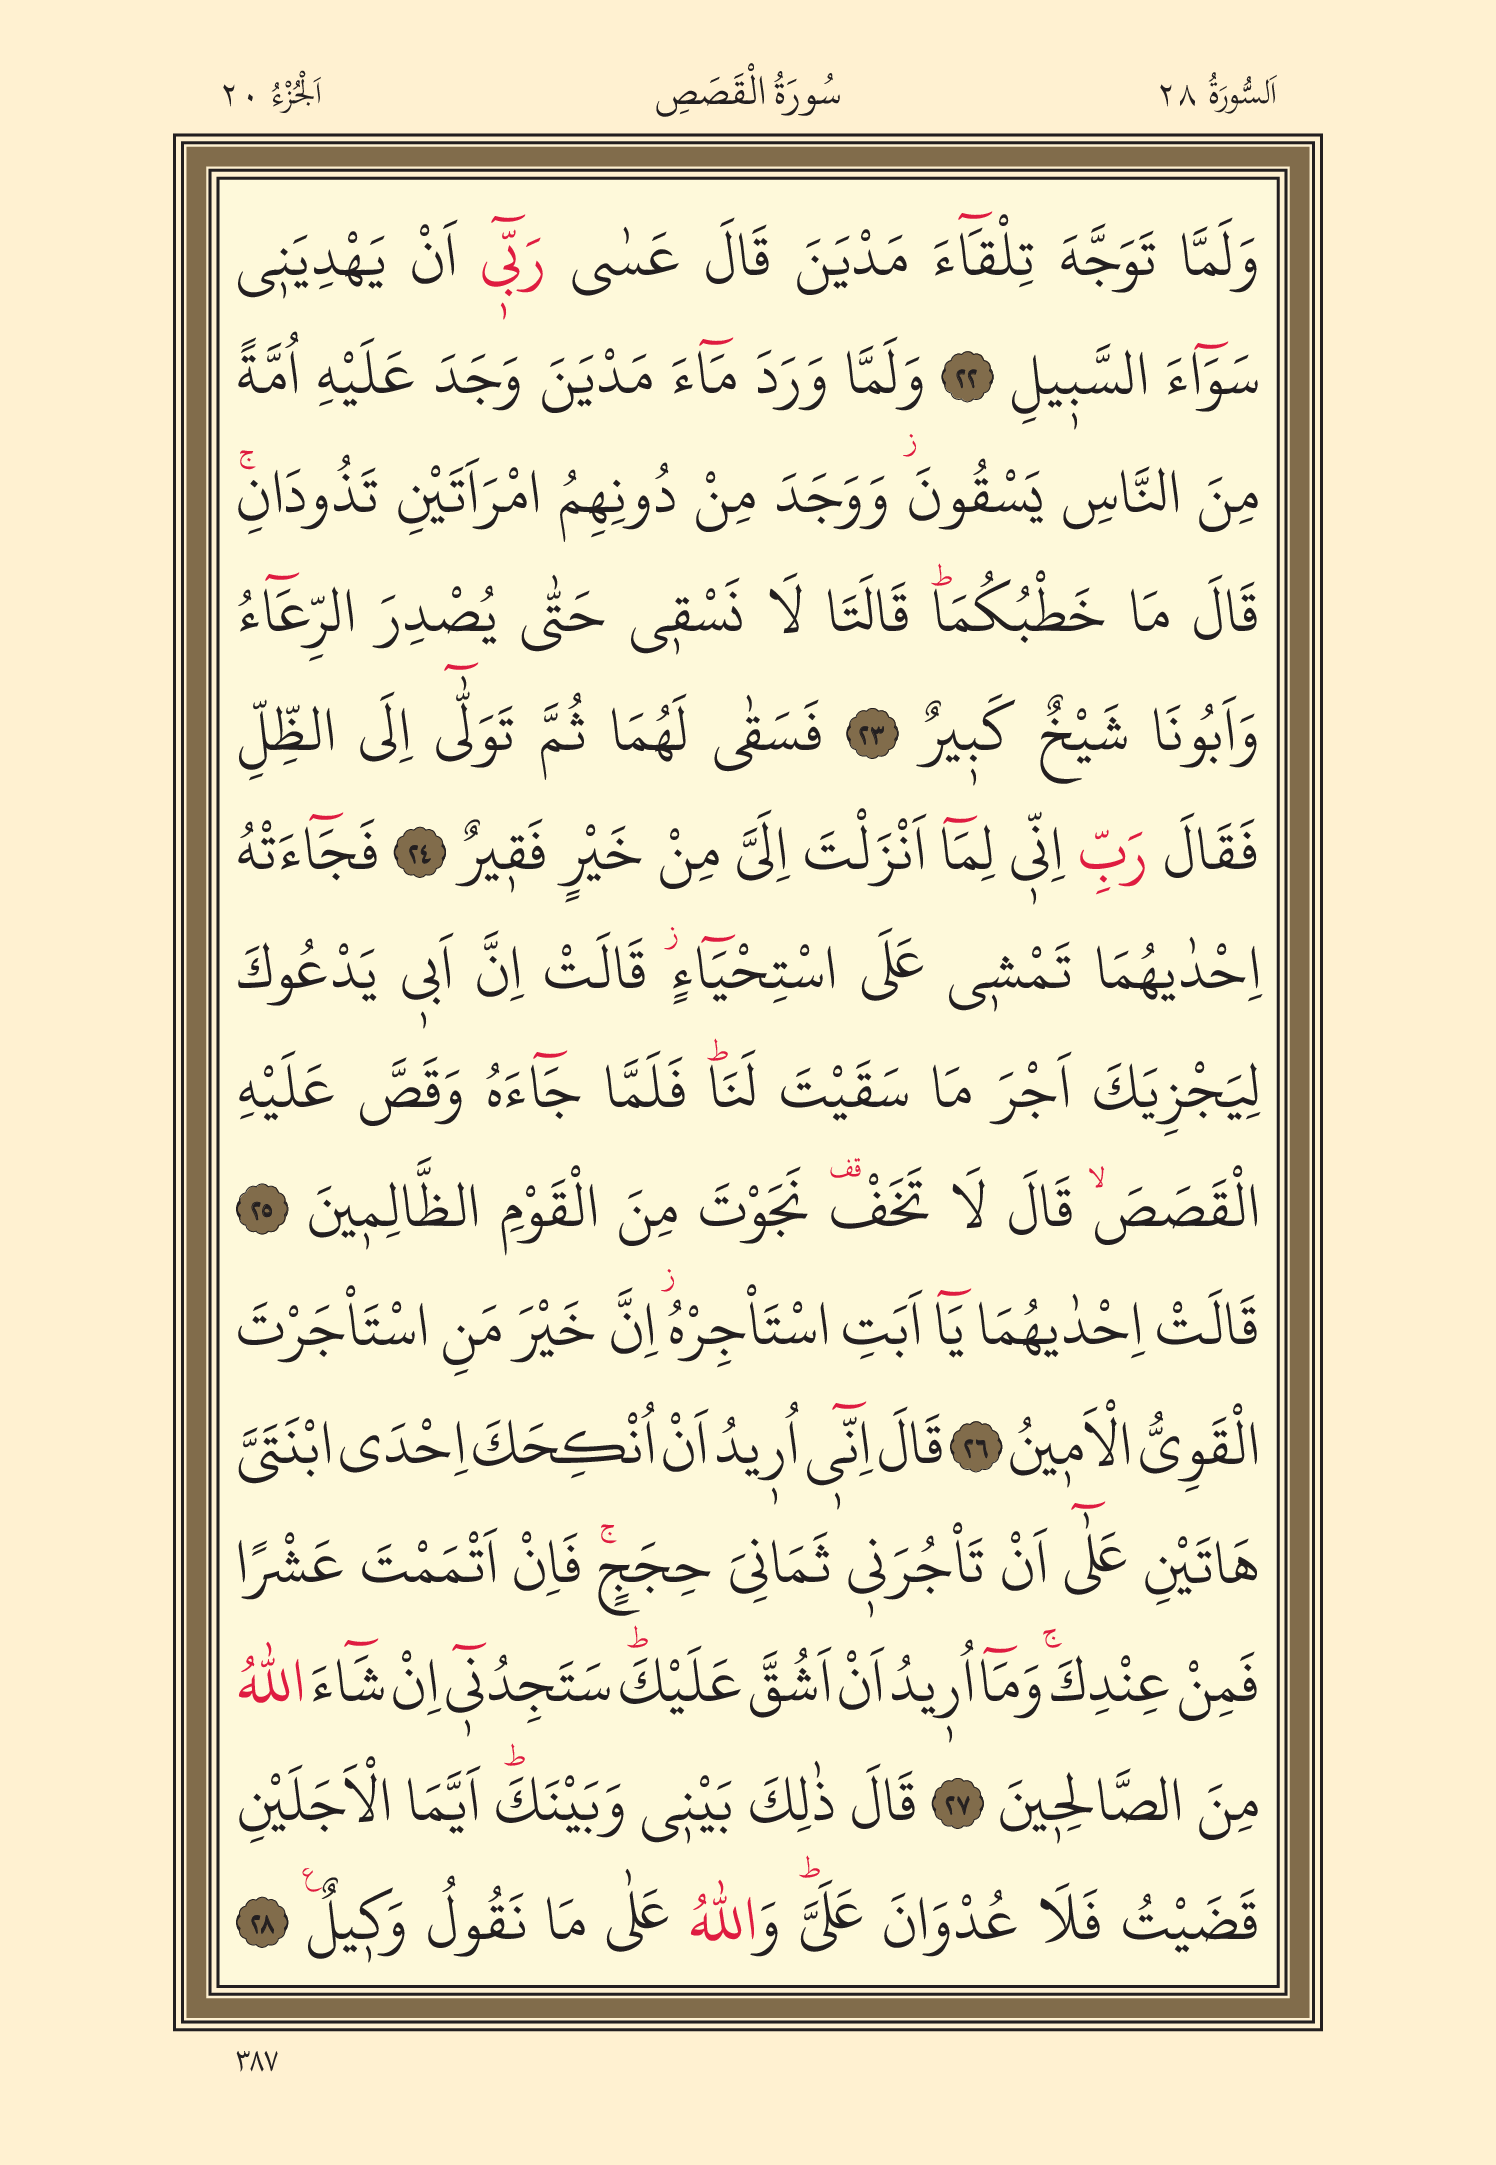 اَلسُّورَةُ ٢٨ سُورَةُ الْقَصَصِ اَلْجُزْءُ ٢٠
وَلَمَّا تَوَجَّهَ تِلْقَٓاءَ مَدْيَنَ قَالَ عَسٰى رَبّ۪ٓي اَنْ يَهْدِيَن۪ي
سَوَٓاءَ السَّب۪يلِ ﴿٢٢﴾ وَلَمَّا وَرَدَ مَٓاءَ مَدْيَنَ وَجَدَ عَلَيْهِ اُمَّةً
مِنَ النَّاسِ يَسْقُونَۘ وَوَجَدَ مِنْ دُونِهِمُ امْرَاَتَيْنِ تَذُودَانِۚ
قَالَ مَا خَطْبُكُمَاۜ قَالَتَا لَا نَسْق۪ي حَتّٰى يُصْدِرَ الرِّعَٓاءُ
وَاَبُونَا شَيْخٌ كَب۪يرٌ ﴿٢٣﴾ فَسَقٰى لَهُمَا ثُمَّ تَوَلّٰٓى اِلَى الظِّلِّ
فَقَالَ رَبِّ اِنّ۪ي لِمَٓا اَنْزَلْتَ اِلَيَّ مِنْ خَيْرٍ فَق۪يرٌ ﴿٢٤﴾ فَجَٓاءَتْهُ
اِحْدٰيهُمَا تَمْش۪ي عَلَى اسْتِحْيَٓاءٍۘ قَالَتْ اِنَّ اَب۪ي يَدْعُوكَ
لِيَجْزِيَكَ اَجْرَ مَا سَقَيْتَ لَنَاۜ فَلَمَّا جَٓاءَهُ وَقَصَّ عَلَيْهِ
الْقَصَصَۙ قَالَ لَا تَخَفْ۠ نَجَوْتَ مِنَ الْقَوْمِ الظَّالِم۪ينَ ﴿٢٥﴾
قَالَتْ اِحْدٰيهُمَا يَٓا اَبَتِ اسْتَاْجِرْهُۘ اِنَّ خَيْرَ مَنِ اسْتَاْجَرْتَ
الْقَوِيُّ الْاَم۪ينُ ﴿٢٦﴾ قَالَ اِنّ۪ٓي اُر۪يدُ اَنْ اُنْكِحَكَ اِحْدَى ابْنَتَيَّ
هَاتَيْنِ عَلٰٓى اَنْ تَاْجُرَن۪ي ثَمَانِيَ حِجَجٍۚ فَاِنْ اَتْمَمْتَ عَشْرًا
فَمِنْ عِنْدِكَۚ وَمَٓا اُر۪يدُ اَنْ اَشُقَّ عَلَيْكَۜ سَتَجِدُن۪ٓي اِنْ شَٓاءَ اللّٰهُ
مِنَ الصَّالِح۪ينَ ﴿٢٧﴾ قَالَ ذٰلِكَ بَيْن۪ي وَبَيْنَكَۜ اَيَّمَا الْاَجَلَيْنِ
قَضَيْتُ فَلَا عُدْوَانَ عَلَيَّۜ وَاللّٰهُ عَلٰى مَا نَقُولُ وَك۪يلٌ۟ ﴿٢٨﴾
٣٨٧